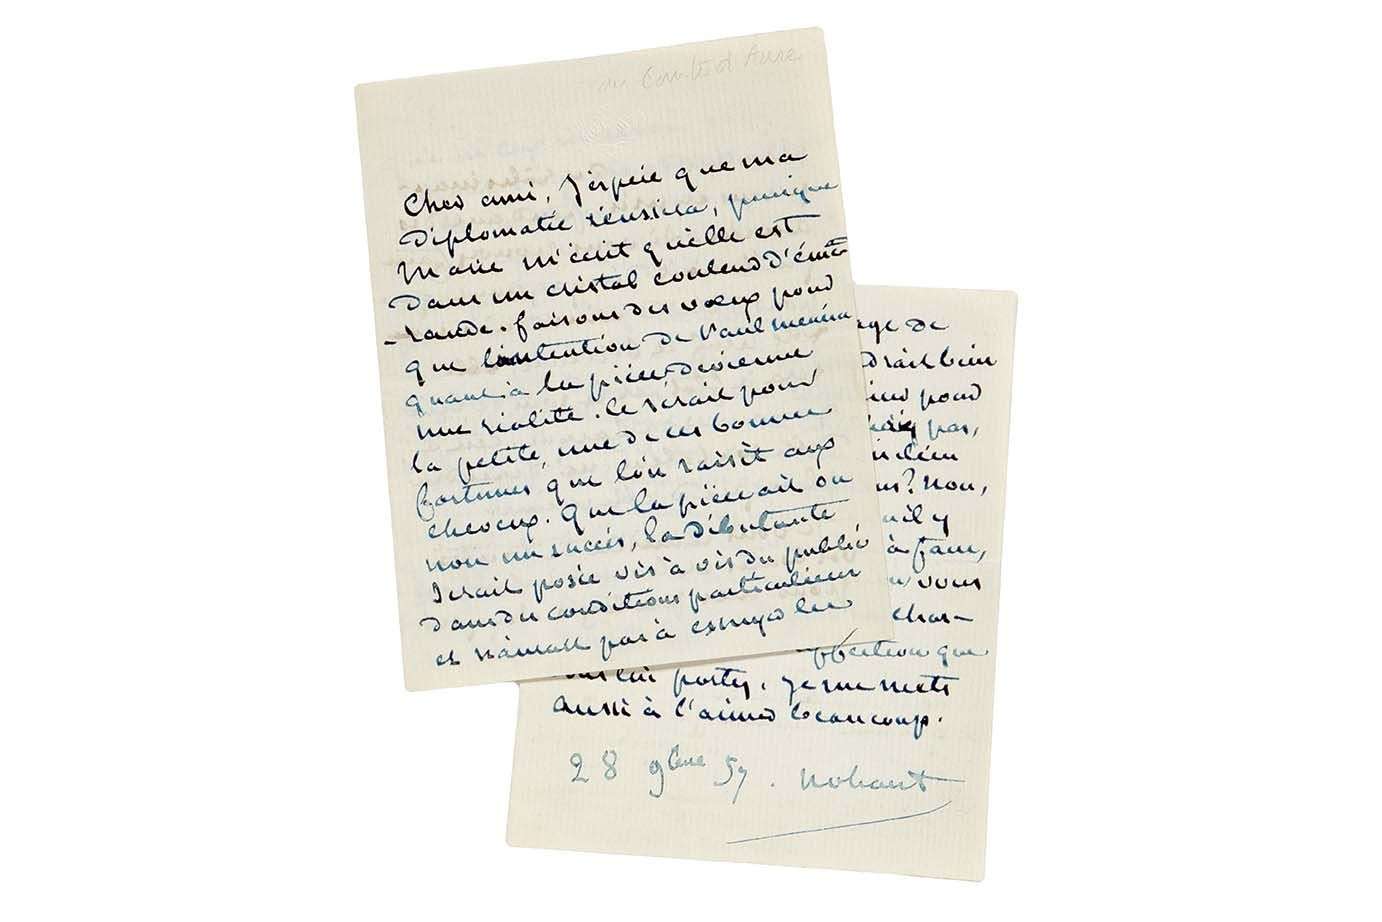 au Comte d'Aure
Cher ami, J'espère que ma
diplomatie réussira, puisque
Marie m'écrit qu'elle est
dans un cristal couleur d'éme
-raude. faisons des vœux pour
que l'intention de Paul meurice
quant à la pièce devienne
une réalité. Ce serait pour
la petite, une de ces bonnes
fortunes que l'on saisit aux
cheveux. Que la pièce ait ou
non un succès, la débutante
serait posée vis à vis du public
dans des conditions particulières
et n'aurait pas à essuyer les
age de
drait bien
pour
pas,
us? Non,
uil y
à faire,
vous
char-
affection que
vous lui portez. je me mets
aussi à l'aimer beaucoup.
28 9bre 57. Nohant